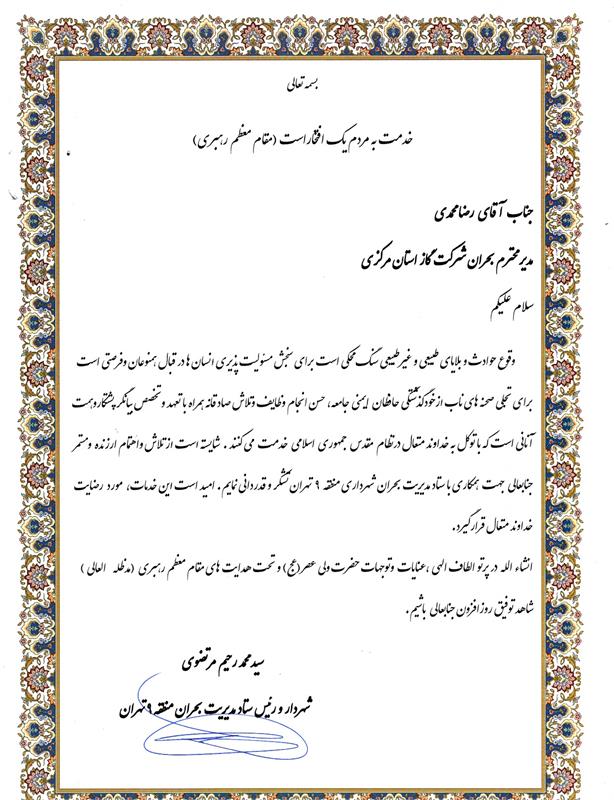 بسمه تعالی
خدمت به مردم یک افتخار است (مقام معظم رهبری)
جناب آقای رضامحمدی
مدیر محترم بحران شرکت گاز استان مرکزی
سلام علیکم
وقوع حوادث و بلایای طبیعی و غیرطبیعی سنگ محکی است برای سنجش مسئولیت پذیری انسان ها در قبال همنوعان وفرصتی است
برای تجلی صحنه های ناب از خودگذشتگی حافظان ایمنی جامعه، حسن انجام وظایف وتلاش صادقانه همراه با تعهد و تخصص بیانگر پشتکار وهمت
آنانی است که با توکل به خداوند متعال در نظام مقدس جمهوری اسلامی خدمت می کنند . شایسته است از تلاش واهتمام ارزنده و مستمر
جنابعالی جهت همکاری با ستاد مدیریت بحران شهرداری منطقه ۹ تهران تشکر و قدردانی نمایم . امید است این خدمات، مورد رضایت
خداوند متعال قرار گیرد.
انشاء الله در پرتو الطاف الهی ،عنایات وتوجهات حضرت ولی عصر(عج) و تحت هدایت های مقام معظم رهبری (مدظله العالی )
شاهد توفیق روز افزون جنابعالی باشیم .
سید محمد رحیم مرتضوی
شهردار و رئیس ستاد مدیریت بحران منطقه ۹ تهران